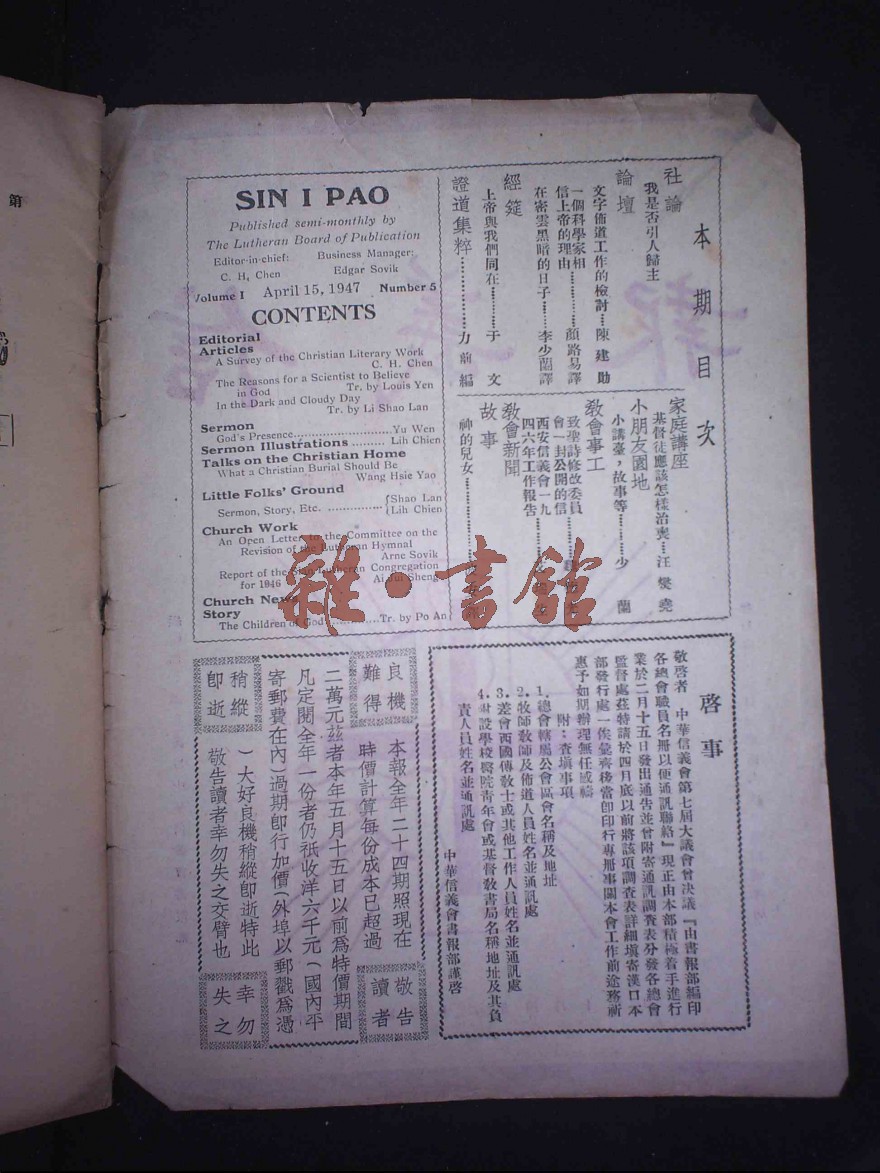 SIN I PAO
Published semi-monthly by
The Lutheran Board of Publication
Editor-in-chief: Business Manager:
C. H. Chen Edgar Sovik
Volume I April 15, 1947 Number 5
CONTENTS
Editorial
Articles
A Survey of the Christian Literary Work
C. H. Chen
The Reasons for a Scientist to Believe
in God Tr. by Louis Yen
In the Dark and Cloudy Day
Tr. by Li Shao Lan
Sermon
God's Presence........................Yu Wen
Sermon Illustrations ......... Lih Chien
Talks on the Christian Home
What a Christian Burial Should Be
Wang Hsie Yao
Little Folks' Ground
Sermon, Story, Etc. ...............{Shao Lan
{Lih Chien
Church Work
An Open Letter to the Committee on the
Revision of the Lutheran Hymnal
Arne Sovik
Report of the Sian Lutheran Congregation
for 1946 Ai Jui Sheng
Church News
Story
The Children of God...............Tr. by Po An
本期目次
社論
我是否引人歸主
論壇
文字佈道工作的檢討……陳建勛
一個科學家相
信上帝的理由…………顏路易譯
在密雲黑暗的日子………李少蘭譯
經筵
上帝與我們同在…………于文
證道集粹…………………力前編
家庭講座
基督徒應該怎樣治喪…汪燮堯
小朋友園地
小講臺，故事等…………少蘭
教會事工
致聖詩修改委員
會一封公開的信
西安信義會一九
四六年工作報告
教會新聞
故事
神的兒女
雜·書館
啓事
敬啓者 中華信義會第七屆大議會曾決議『由書報部編印
各總會職員名冊以便通訊聯絡』現正由本部積極着手進行
業於二月十五日發出通告並曾附寄通訊調查表分發各總會
監督處茲特請於四月底以前將該項調查表詳細填寄漢口本
部發行處一俟彙齊後當卽印行專冊事關本會工作前途務祈
惠予如期辦理無任感禱
附：查塡事項
1.總會轄屬公會區會名稱及地址
2.牧師教師及佈道人員姓名並通訊處
3.差會西國傳教士或其他工作人員姓名並通訊處
4.附設學校醫院靑年會或基督敎書局名稱地址及其負
責人員姓名並通訊處
中華信義會書報部謹啓
敬告
讀者
良機
難得
本報全年二十四期照現在
時價計算每份成本已超過
二萬元茲者本年五月十五日以前爲特價期間
凡定閱全年一份者仍祇收洋六千元（國內平
寄郵費在內）過期卽行加價（外埠以郵戳爲憑
）大好良機稍縱卽逝特此
敬告讀者幸勿失之交臂也
幸勿
失之
稍縱
卽逝
第